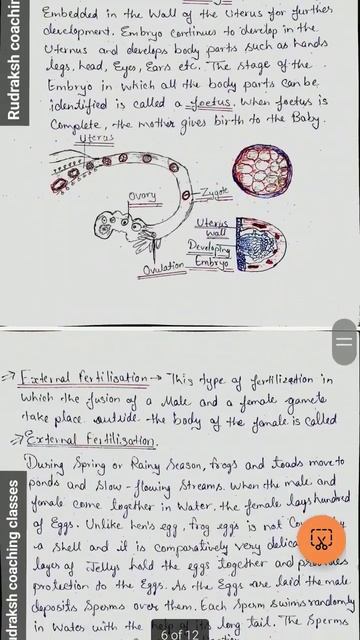 Rudraksh coachin
Embedded in the Wall of the Uterus for further
development. Embryo continues to develop in the
Uterus and develops body parts such as hands
legs, head, Eyes, Ears etc. The stage of the
Embryo in which all the body parts can be
identified is called a foetus. When foetus is
Complete, the mother gives birth to the Baby.
Uterus
Ovary
Zygote
Uterus
Wall
Developing
Embryo
Ovulation
External Fertilisation → This type of fertilization in
Which the fusion of a Male and a female gamete
take place outside the body of the female is called
External Fertilisation.
During Spring or Rainy Season, frogs and toads move to
ponds and slow-flowing streams. When the male and
female come together in Water, the female lays hundred
of Eggs. Unlike hen's egg, frog eggs is not
a shell and it is comparatively very
layer of Jellys hold the eggs together and provides
protection to the Eggs. As the Eggs are laid the male
deposits Sperms over them. Each Sperm swims randomly
in Water with the help of its long tail. The Sperms
6 of 12
udraksh coaching classes